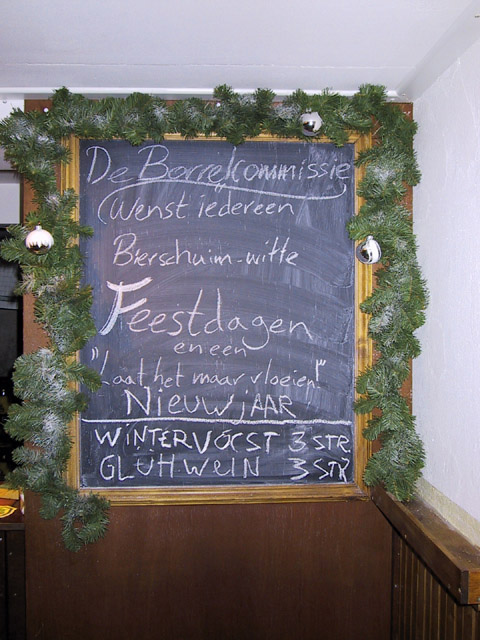 De Borrelcommissie
Wenst iedereen
Bierschuim-witte
Feestdagen
en een
"Laat het maar vloeien!"
NIEUWJAAR
WINTERVORST 3 STR.
GLÜHWEIN 3 STR